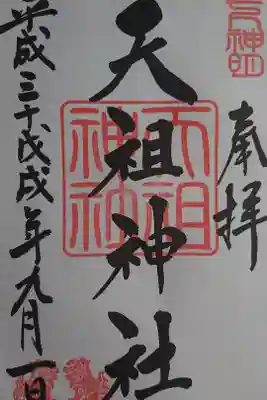 奉拝
天祖神社
天祖
神社
平成三十戊戌年九月一日